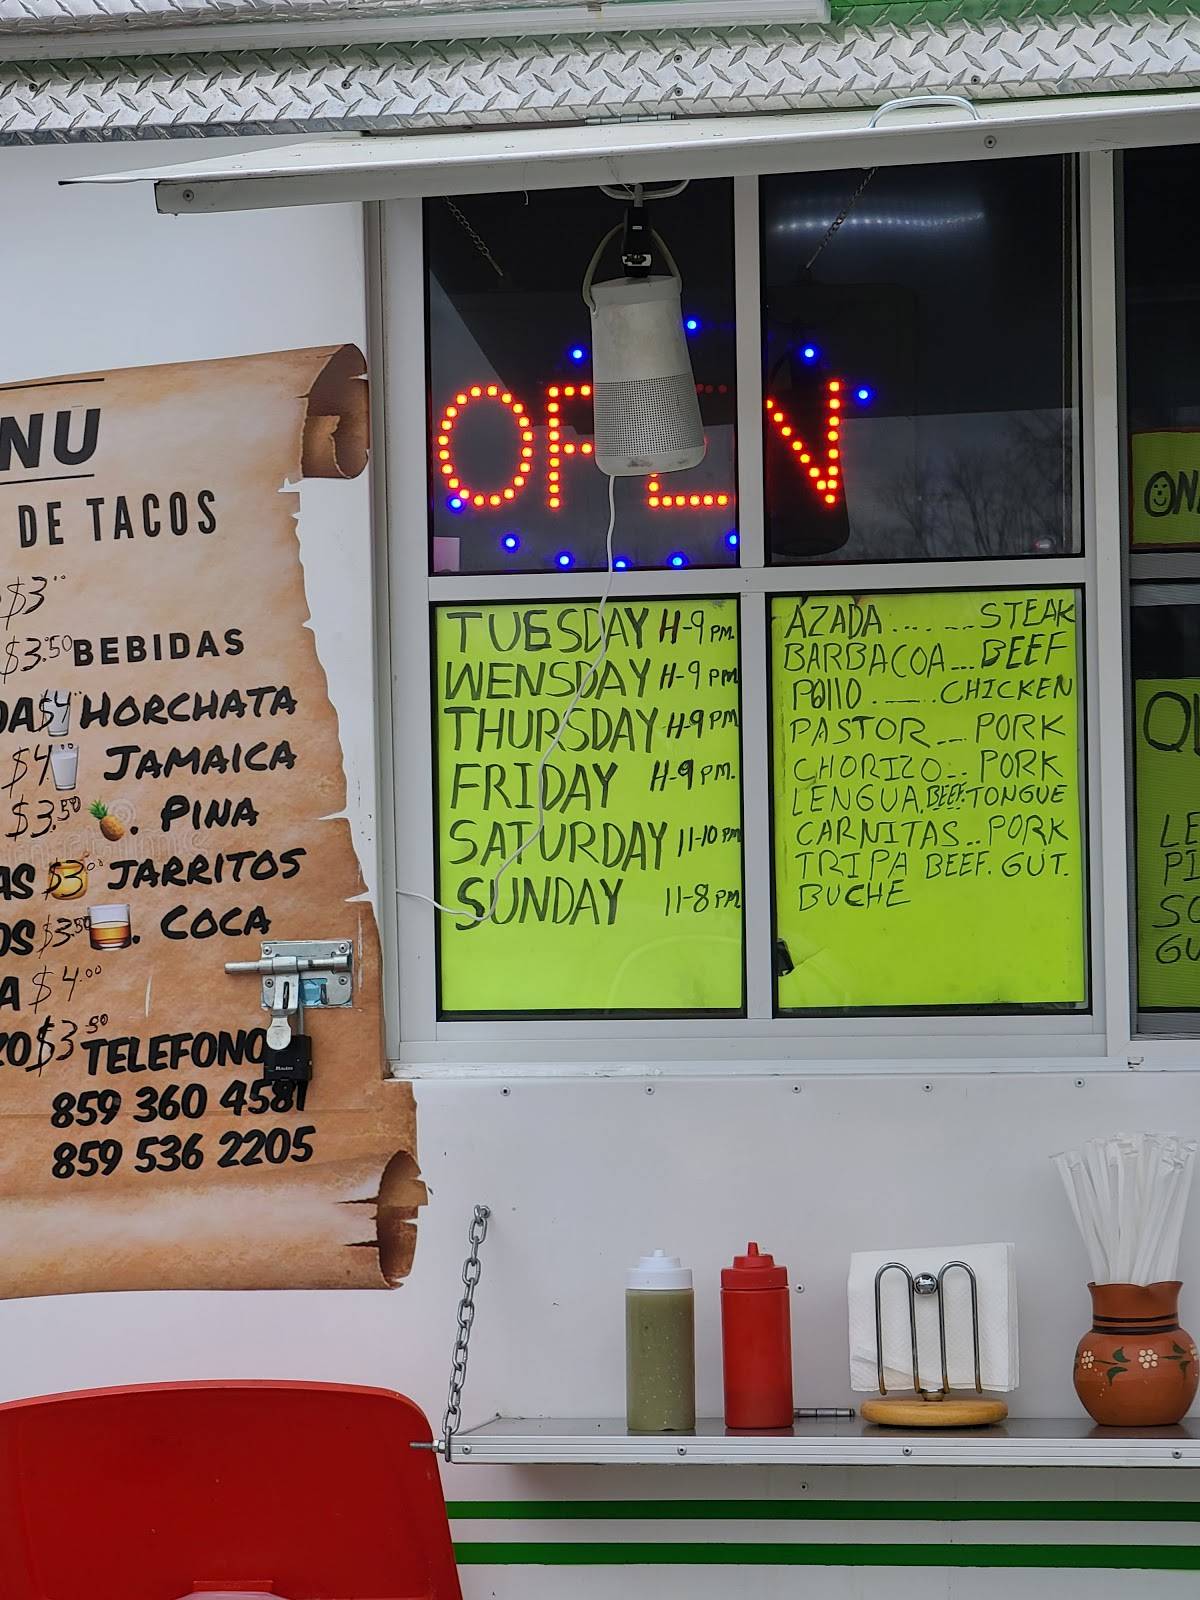 NU
DE TACOS
$3
$3.50 BEBIDAS
$4 HORCHATA
$4 JAMAICA
$3.50 PINA
AS $3 JARRITOS
OS $3.50 COCA
A $4.00
ZO $3.50 TELEFONO
859 360 4581
859 536 2205
OPEN
TUESDAY 11-9 PM.
WENSDAY 11-9 PM
THURSDAY 11-9 PM
FRIDAY 11-9 PM.
SATURDAY 11-10 PM
SUNDAY 11-8 PM
AZADA........STEAK
BARBACOA...BEEF
POllO......CHICKEN
PASTOR...PORK
CHORIZO..PORK
LENGUA.BEEF.TONGUE
CARNITAS..PORK
TRIPA BEEF.GUT.
BUCHE
ON
QU
LE
PI
SO
GU